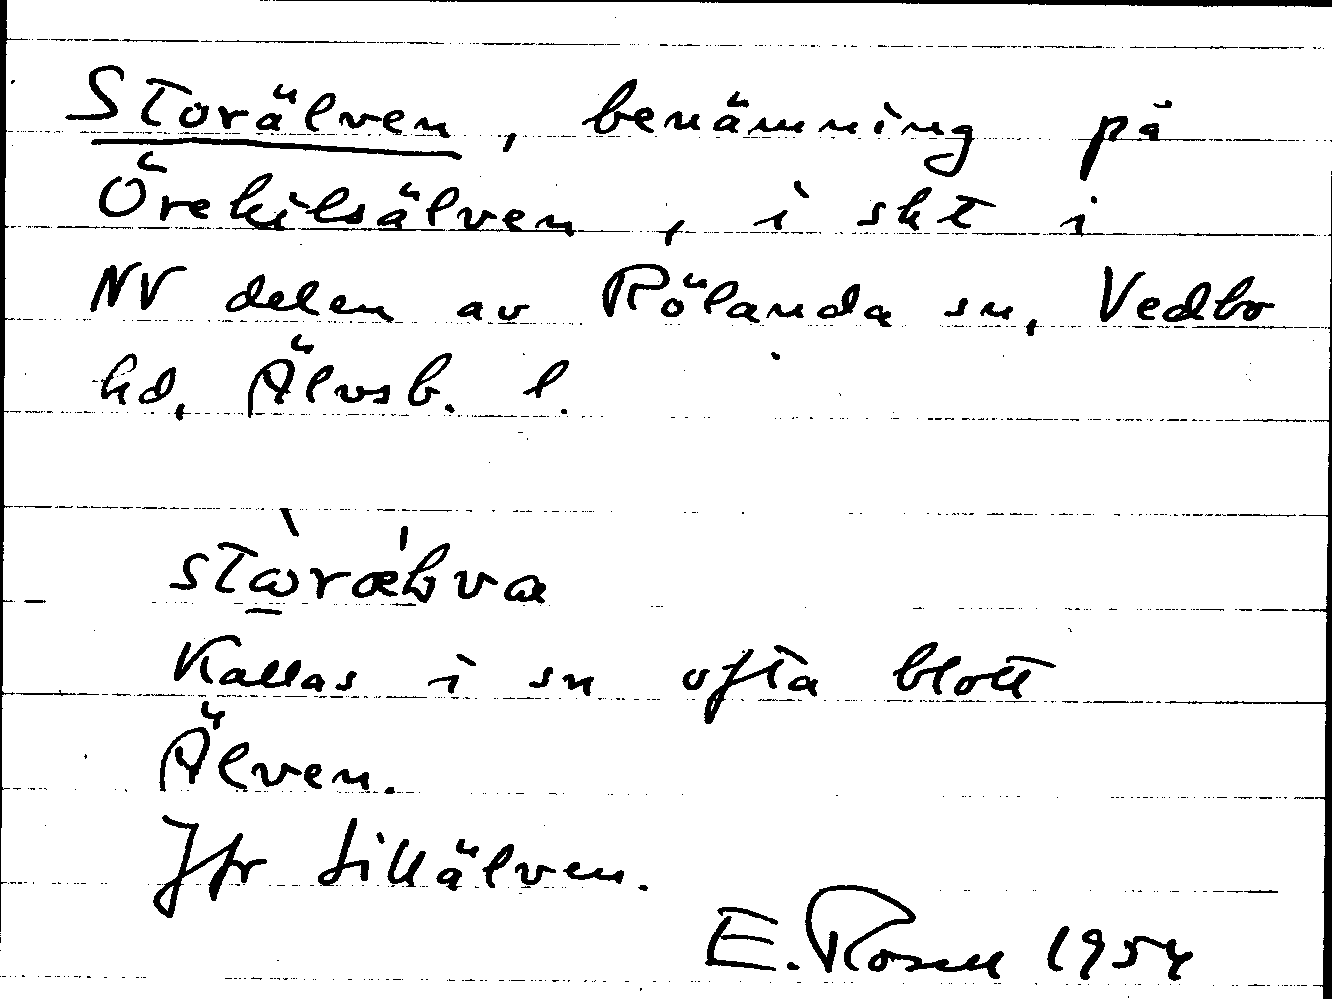 Storälven, benämning på
Örekilsälven, i skt i
NV delen av Rölanda sn, Vedbo
hd, Älvsb. l.
Kallas i sn ofta blott
Älven.
Jfr Lillälven.
E. Rosell 1954